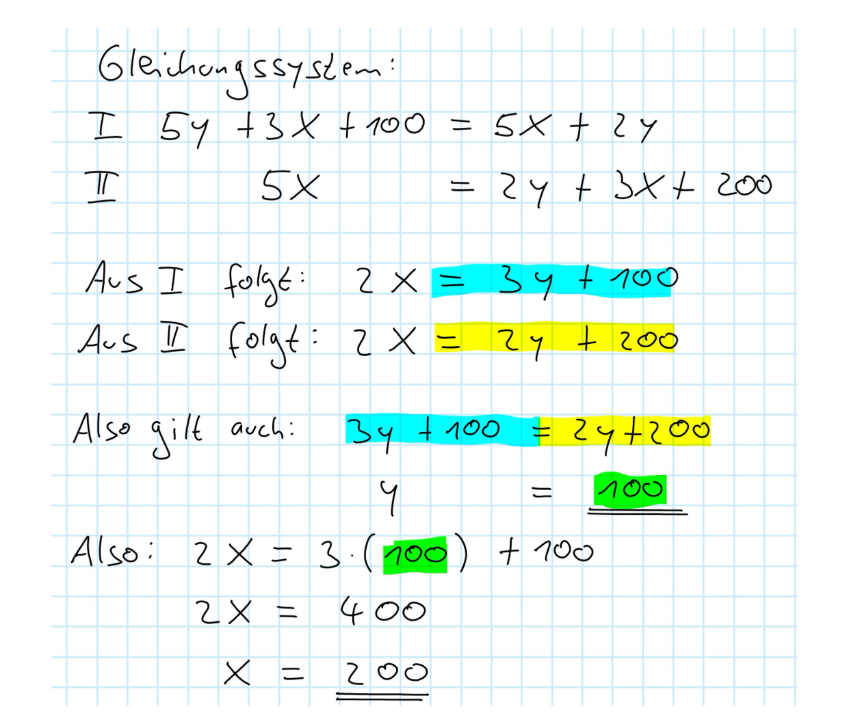 Gleichungssystem:
I 5y + 3x + 100 = 5x + 2y
II 5x = 2y + 3x + 200
Aus I folgt: 2x = 3y + 100
Aus II folgt: 2x = 2y + 200
Also gilt auch: 3y + 100 = 2y + 200
y = 100
Also: 2x = 3·(100) + 100
2x = 400
x = 200